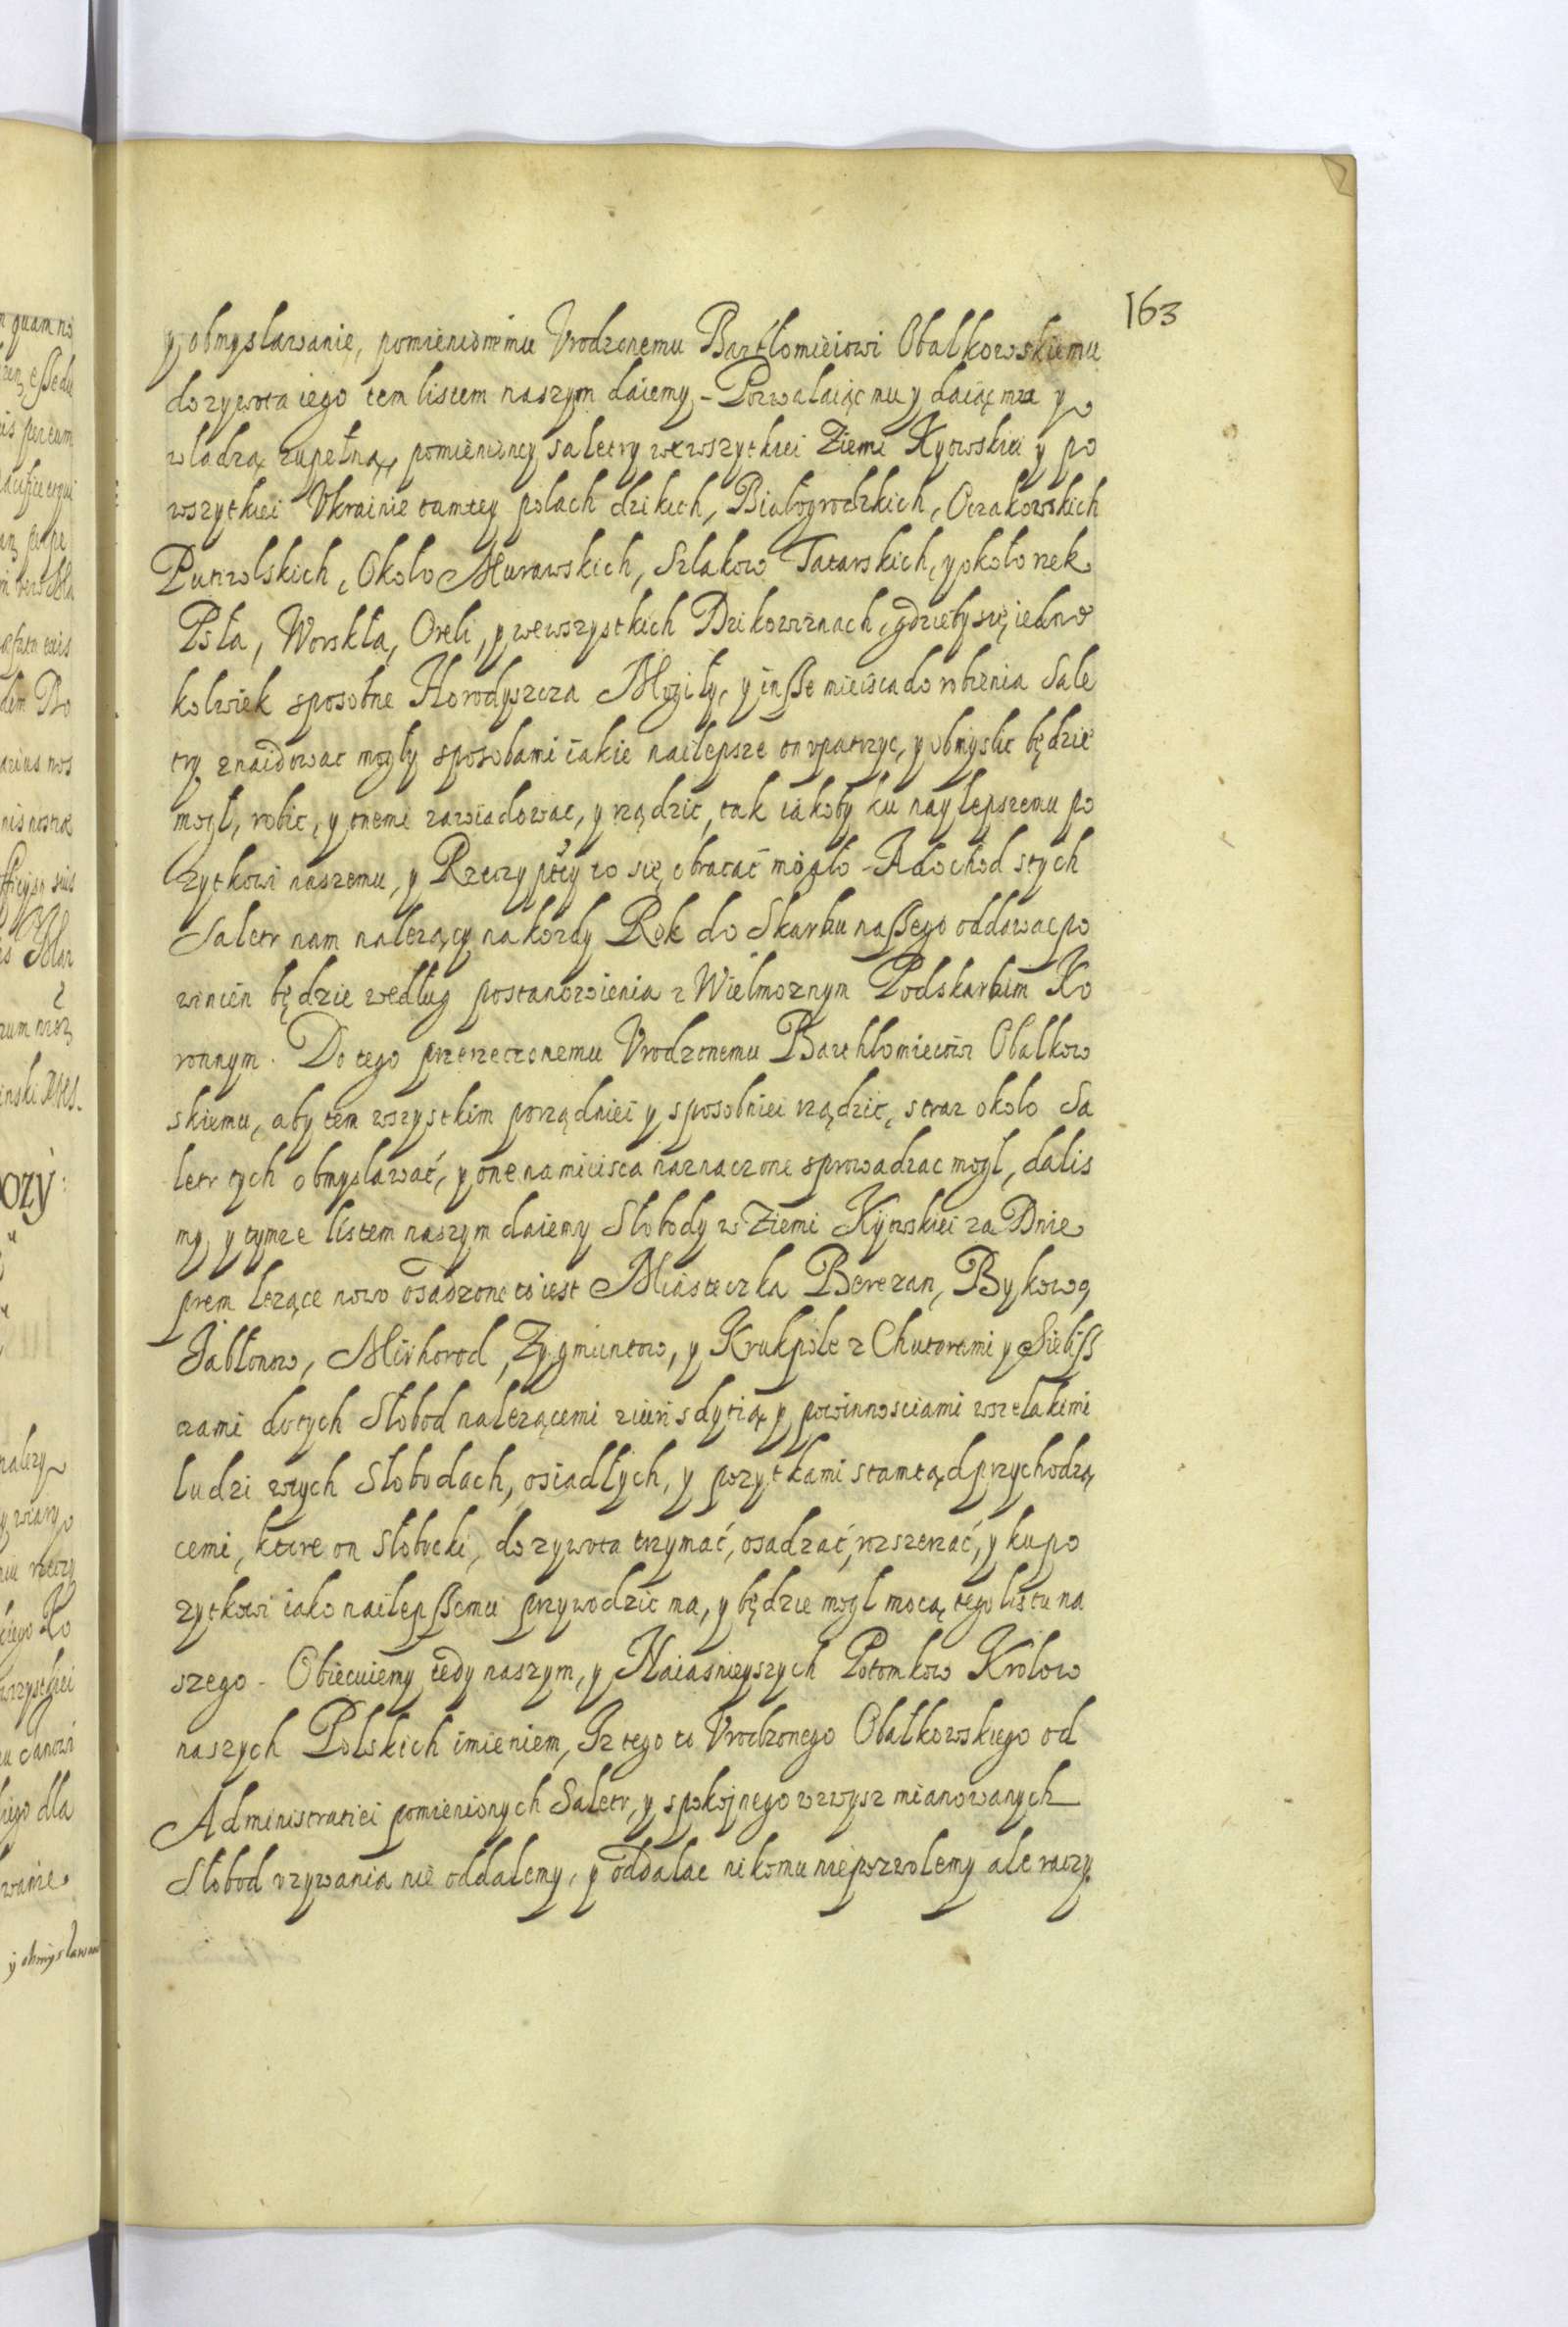 163
y obmyslawanie, pomienionemu Vrodzonemu Bartłomieiowi Obalkowskiemu
do zywota iego tem listem naszym daiemy - Pozwalaiąc mu y daiąc mu y
wladzą zupełną, pomienioney saletry we wszytkiei Ziemi Kyowskiei y po
wszytkiei Vkrainie tamtey polach dzikich, Białogrodzkich, Oczakowskich
Putiwlskich, Okolo Murawskich, Szlakow Tatarskich, y okolo rzek
Psła, Worskła, Oreli, y we wszystkich Dzikowiznach, gdzieby się iedno
kolwiek sposobne Horodyszcza Mogiły, y insze mieisca do robienia Sale
try znaidowac mogły sposobami iakie nailepsze on vpatrzyc, y obmyslic będzie
mogl, robic, y onemi zawiadowac, y rządzic, tak iakoby ku naylepszemu po
zytkowi naszemu, y Rzeczyptey to się obracać mogło - A dochod z tych
Saletr nam należący na kozdy Rok do Skarbu naszego oddawac po
winien będzie według postanowienia z Wielmoznym Podskarbim Ko
ronnym. Do tego przerzeczonemu Vrodzonemu Barthłomieiowi Obalkow
skiemu, aby tem wszystkim porządniei y sposobniei rządzic, straz okolo Sa
letr tych obmyslawać, y one na mieisca naznaczone sprowadzac mogl, dalis
my, y tymze listem naszym daiemy Słobody w Ziemi Kijowskiei za Dnie
prem lezące nowo osadzone to iest Miasteczka Berezan, Bykowo,
Jabłonow, Mirhorod, Zygmuntow, y Krukpole z Chutorami y Sieliss
czami do tych Słobod nalezącemi ziurisdytią y powinnosciami wszelakimi
ludzi w tych Słobodach, osiadłych, y pozytkami stamtąd przychodzą
cemi, ktore on Słobocki, do zywota trzymać, osadzać, rzszerzać, y ku po
zytkowi iako nailepszemu przywodzic ma, y będzie mogl mocą tego listu na
szego - Obiecuiemy tedy naszym, y Naiasnieyszych Potomkow Krolow
naszych Polskich imieniem, Iz tego to Vrodzonego Obałkowskiego od
Administratiei pomienionych Saletr, y spokojnego wzwysz mianowanych
Słobod vzywania nie oddalemy, y oddalac nikomu niepozwolemy ale raczy